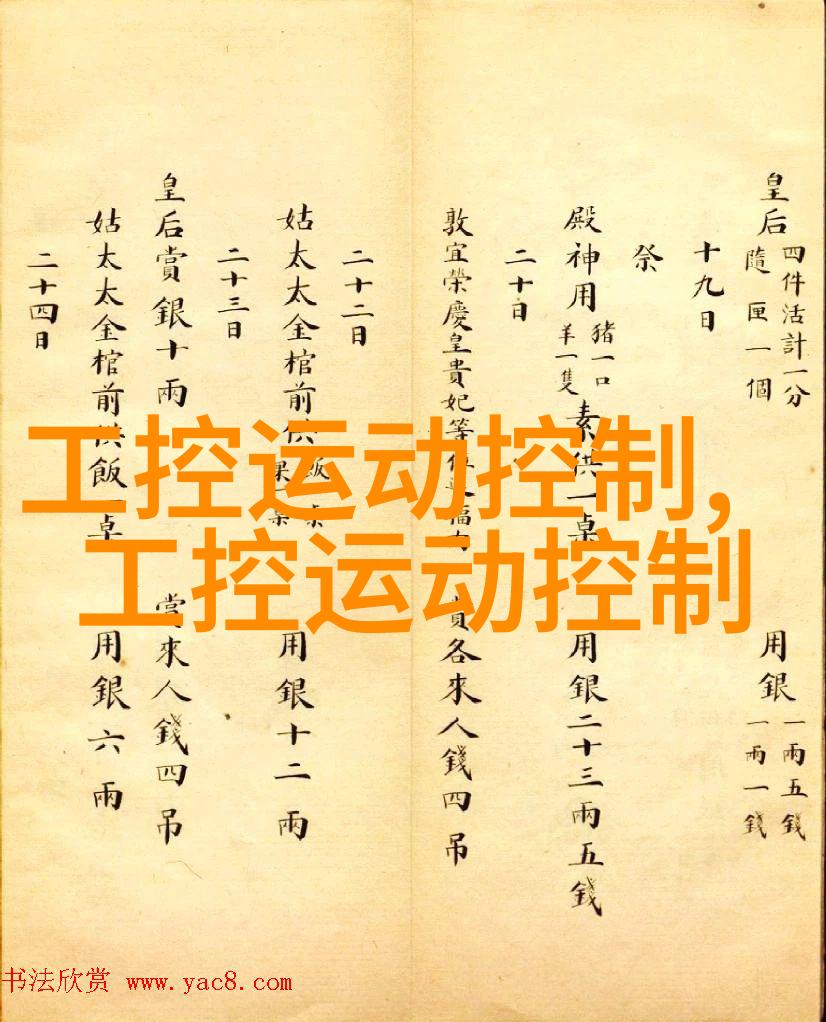 皇后 四件活計一分 隨匣一個 用銀 一兩五錢 一兩一錢
十九日
祭
殿神用 豬一口 羊一隻 素供一桌 用銀二十三兩五錢
二十日
敦宜榮慶皇貴妃等位 賞各來人錢四吊
二十二日
姑太太金棺前供 飯一桌 果一桌 用銀十二兩
二十三日
皇后賞銀十兩 賞來人錢四吊
姑太太金棺前供飯一桌 用銀六兩
二十四日
工控运动控制,
工控运动控制
书法欣赏 www.yac8.com